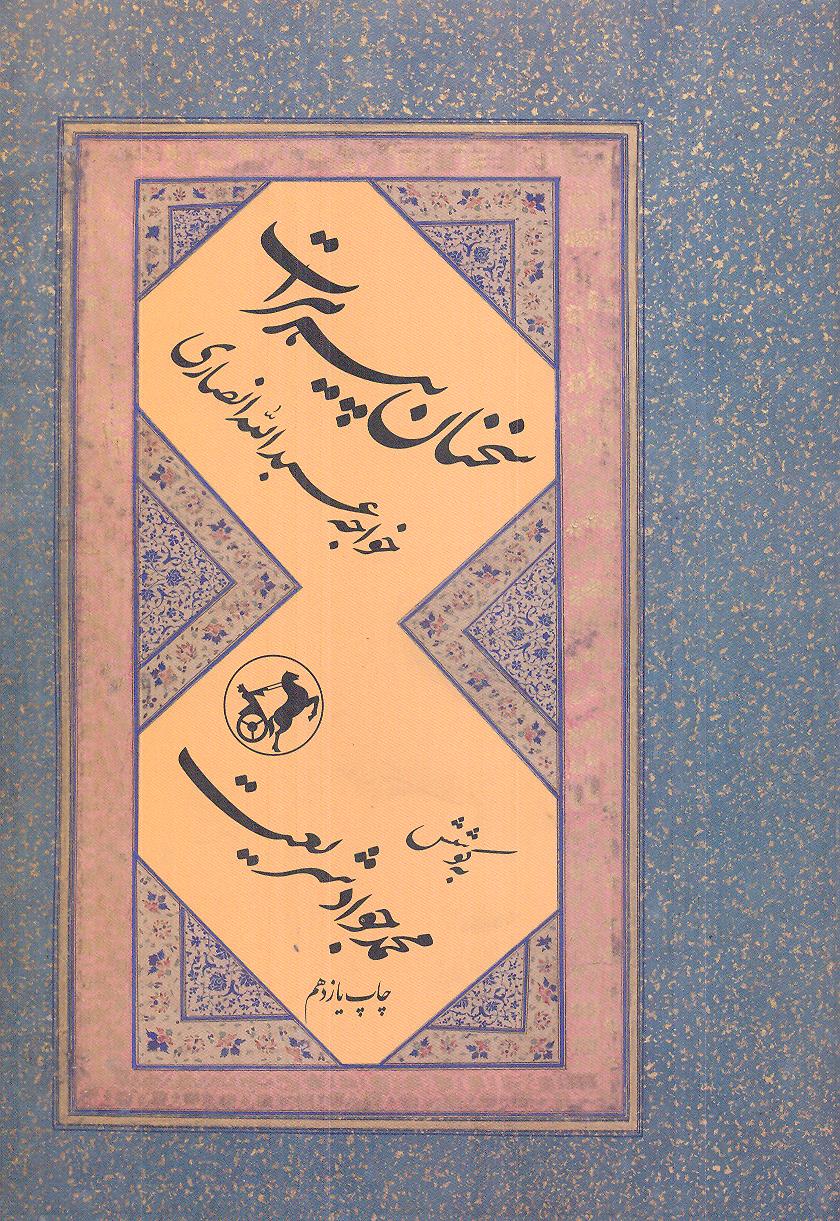 سخنان پیر هرات
خواجه عبدالله انصاری
به کوشش
محمد جواد شریعت
چاپ یازدهم